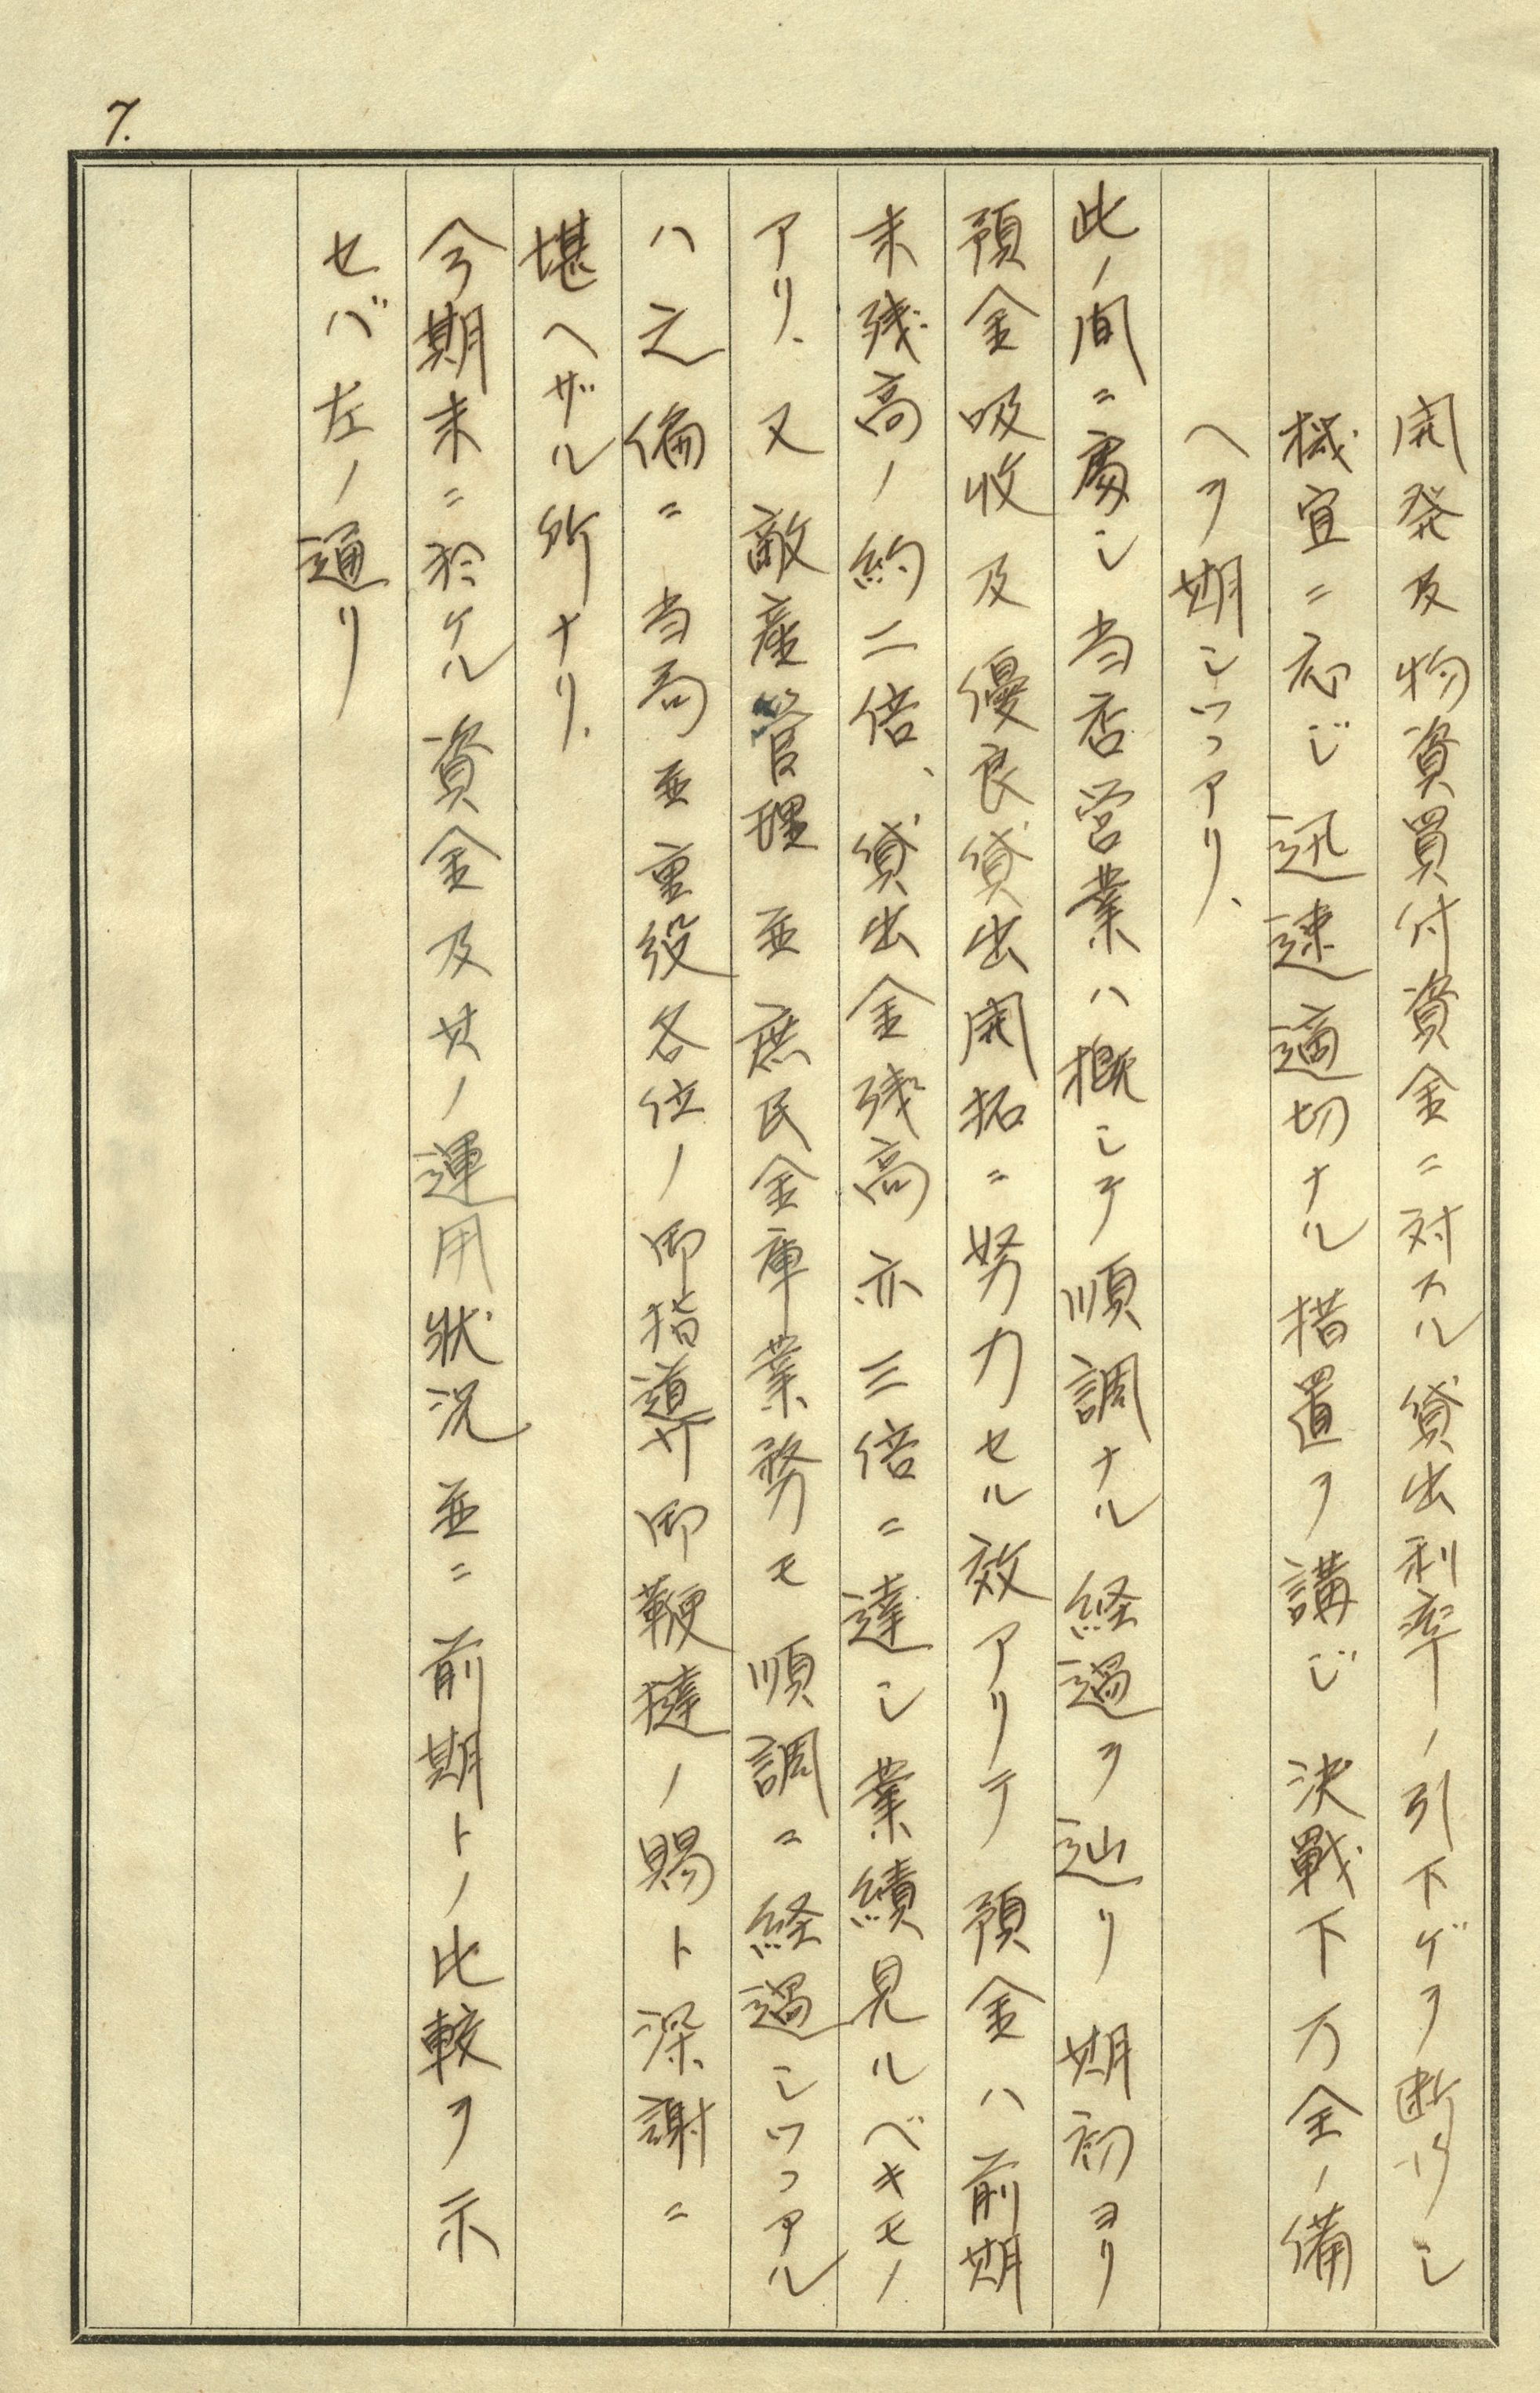 7.
開発及物資買付資金ニ対スル貸出利率ノ引下ゲヲ断行シ
機宜ニ応ジ迅速適切ナル措置ヲ講ジ決戰下万全ノ備
ヘヲ期シツヽアリ、
此ノ間ニ處シ当店営業ハ概シテ順調ナル経過ヲ辿リ期初ヨリ
預金吸收及優良貸出開拓ニ努力セル效アリテ預金ハ前期
末残高ノ約二倍、貸出金残高亦三倍ニ達シ業績見ルベキモノ
アリ、又敵産管理並庶民金庫業務モ順調ニ経過シツヽアル
ハ之偏ニ当局並重役各位ノ御指導御鞭撻ノ賜ト深謝ニ
堪ヘザル所ナリ、
今期末ニ於ケル資金及其ノ運用狀況並ニ前期トノ比較ヲ示
セバ左ノ通リ